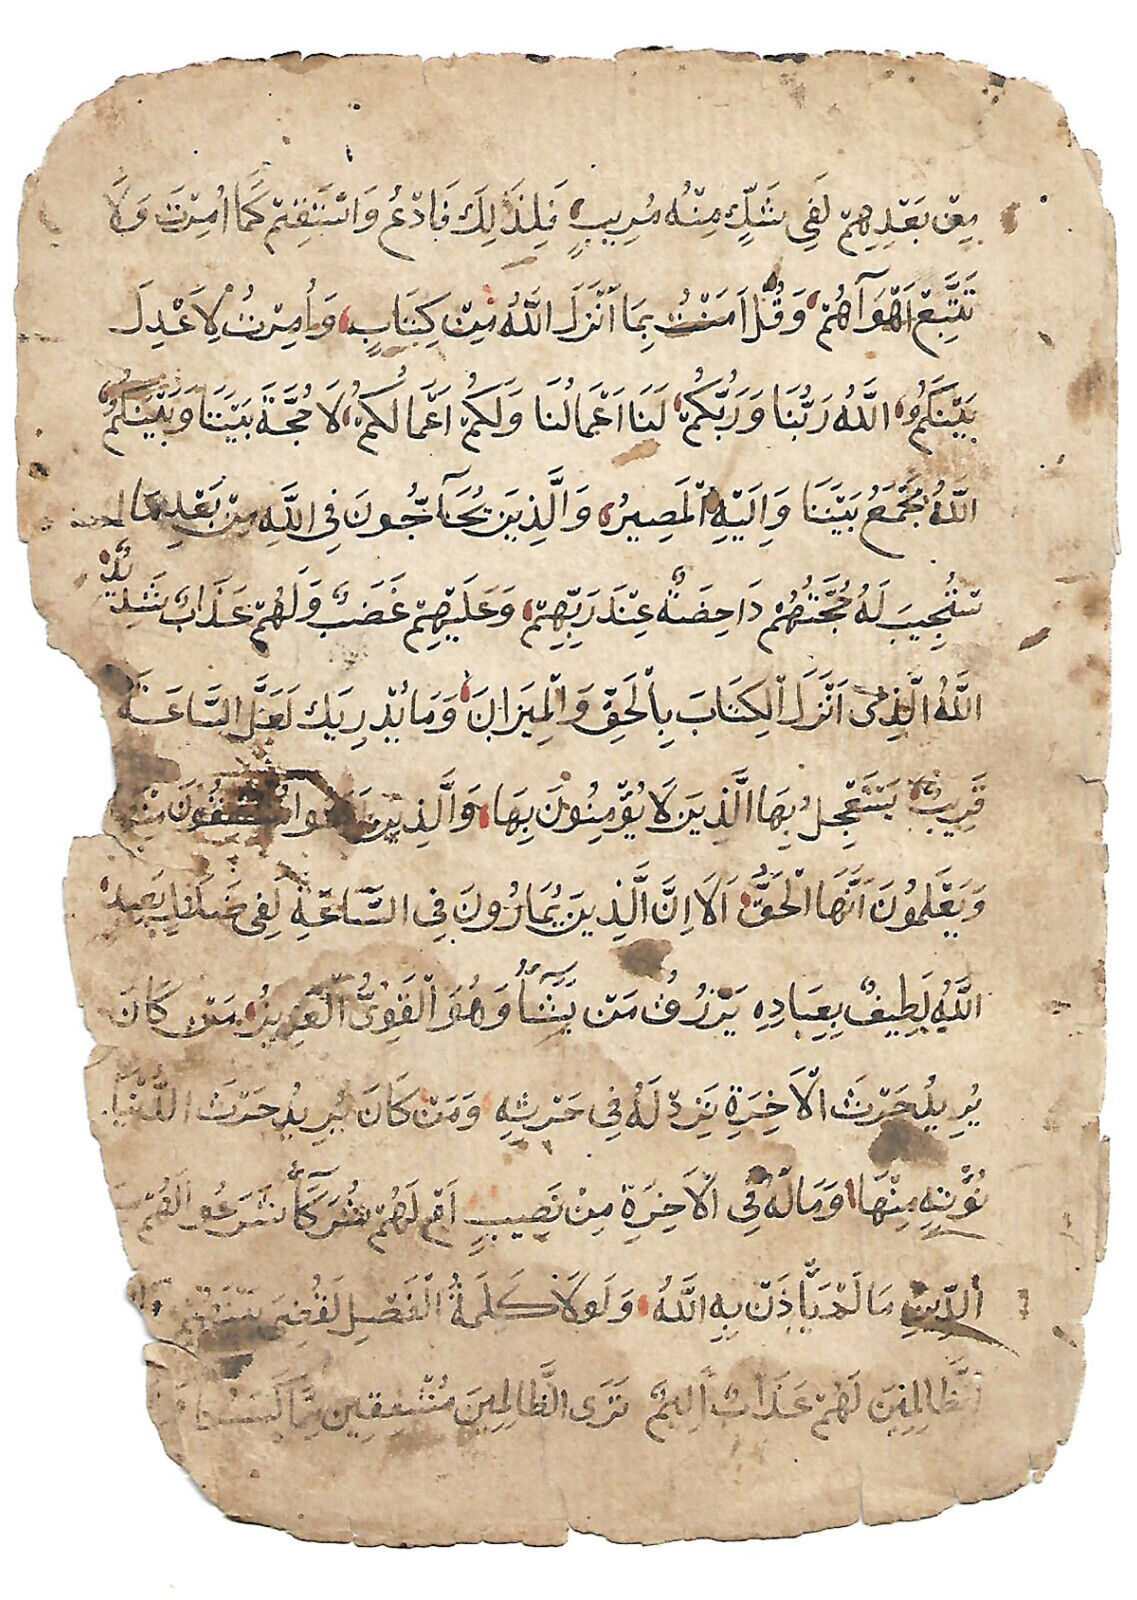 مِنْ بَعْدِهِمْ لَفِي شَكٍّ مِنْهُ مُرِيبٍ فَلِذَلِكَ فَادْعُ وَاسْتَقِمْ كَمَا اُمِرْتَ وَلَا
تَتَّبِعْ اَهْوَآهُمْ وَقُلْ اٰمَنْتُ بِمَا اَنْزَلَ اللَّهُ مِنْ كِتَابٍ وَأُمِرْتُ لِاَعْدِلَ
بَيْنَكُمُ اللَّهُ رَبُّنَا وَرَبُّكُمْ لَنَا اَعْمَالُنَا وَلَكُمْ اَعْمَالُكُمْ لَا حُجَّةَ بَيْنَنَا وَبَيْنَكُمُ
اللَّهُ يَجْمَعُ بَيْنَنَا وَاِلَيْهِ الْمَصِيرُ وَالَّذِينَ يُحَآجُّونَ فِي اللَّهِ مِنْ بَعْدِ مَا
سْتُجِيبَ لَهُ حُجَّتُهُمْ دَاحِضَةٌ عِنْدَ رَبِّهِمْ وَعَلَيْهِمْ غَضَبٌ وَلَهُمْ عَذَابٌ شَدِيدٌ
اللَّهُ الَّذِي اَنْزَلَ الْكِتَابَ بِالْحَقِّ وَالْمِيزَانَ وَمَا يُدْرِيكَ لَعَلَّ السَّاعَةَ
قَرِيبٌ يَسْتَعْجِلُ بِهَا الَّذِينَ لَا يُؤْمِنُونَ بِهَا وَالَّذِينَ
وَيَعْلَمُونَ اَنَّهَا الْحَقُّ اَلَا اِنَّ الَّذِينَ يُمَارُونَ فِي السَّاعَةِ لَفِي ضَلَالٍ بَعِيدٍ
اللَّهُ لَطِيفٌ بِعِبَادِهِ يَرْزُقُ مَنْ يَشَآءُ وَهُوَ الْقَوِيُّ الْعَزِيزُ مَنْ كَانَ
يُرِيدُ حَرْثَ الْاَخِرَةِ نَزِدْ لَهُ فِي حَرْثِهِ وَمَنْ كَانَ يُرِيدُ حَرْثَ الدُّنْيَا
نُؤْتِهِ مِنْهَا وَمَالَهُ فِي الْاَخِرَةِ مِنْ نَصِيبٍ اَمْ لَهُمْ شُرَكَآءُ شَرَعُوا لَهُمْ
الدِّينِ مَا لَمْ يَأْذَنْ بِهِ اللَّهُ وَلَوْلَا كَلِمَةُ الْفَصْلِ لَقُضِيَ بَيْنَهُمْ
الظَّالِمِينَ لَهُمْ عَذَابٌ اَلِيمٌ تَرَى الظَّالِمِينَ مُشْفِقِينَ مِمَّا كَسَبُوا